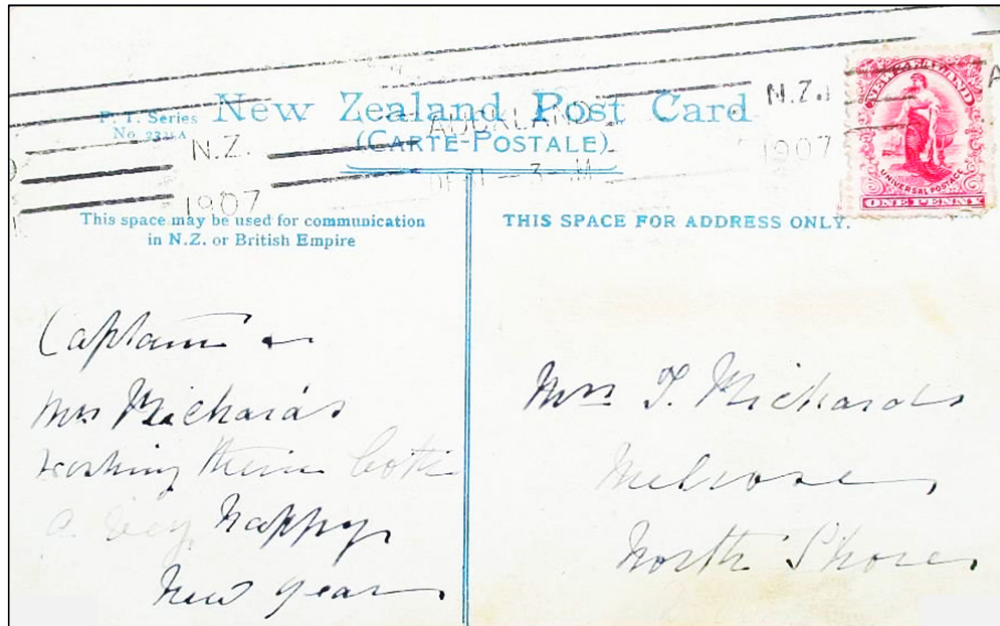 F. T. Series
No. 2331A
New Zealand Post Card
(CARTE-POSTALE)
AUCKLAND
N.Z.
1907
N.Z.
1907
NEW ZEALAND
UNIVERSAL POSTAGE
ONE PENNY
This space may be used for communication
in N.Z. or British Empire
THIS SPACE FOR ADDRESS ONLY.
Captain &
Mrs Richards
wishing them both
a very happy
New year
Mrs T. Richards
Melrose
North Shore